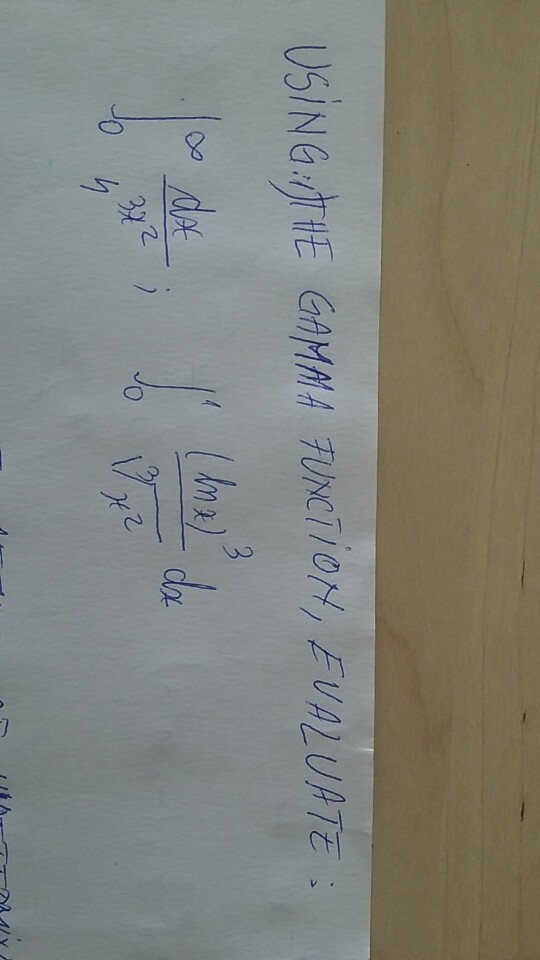 USING THE GAMMA FUNCTION, EVALUATE:
∫₀^∞ dx / 4^(3x²) ; ∫₀¹ (ln x)³ / ∛(x²) dx